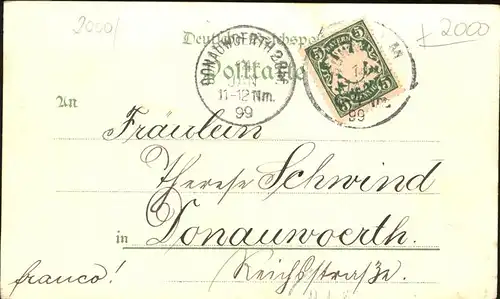 2000/
± 2000
Deutsche Reichspost
Postkarte
DONAUWOERTH 2. B.
JAN
11-12 Nm.
99
5 BAYERN 5
5 5
AN
99
An
Fräulein
Therese Schwind
in Donauwoerth.
franco! Reichstraße.